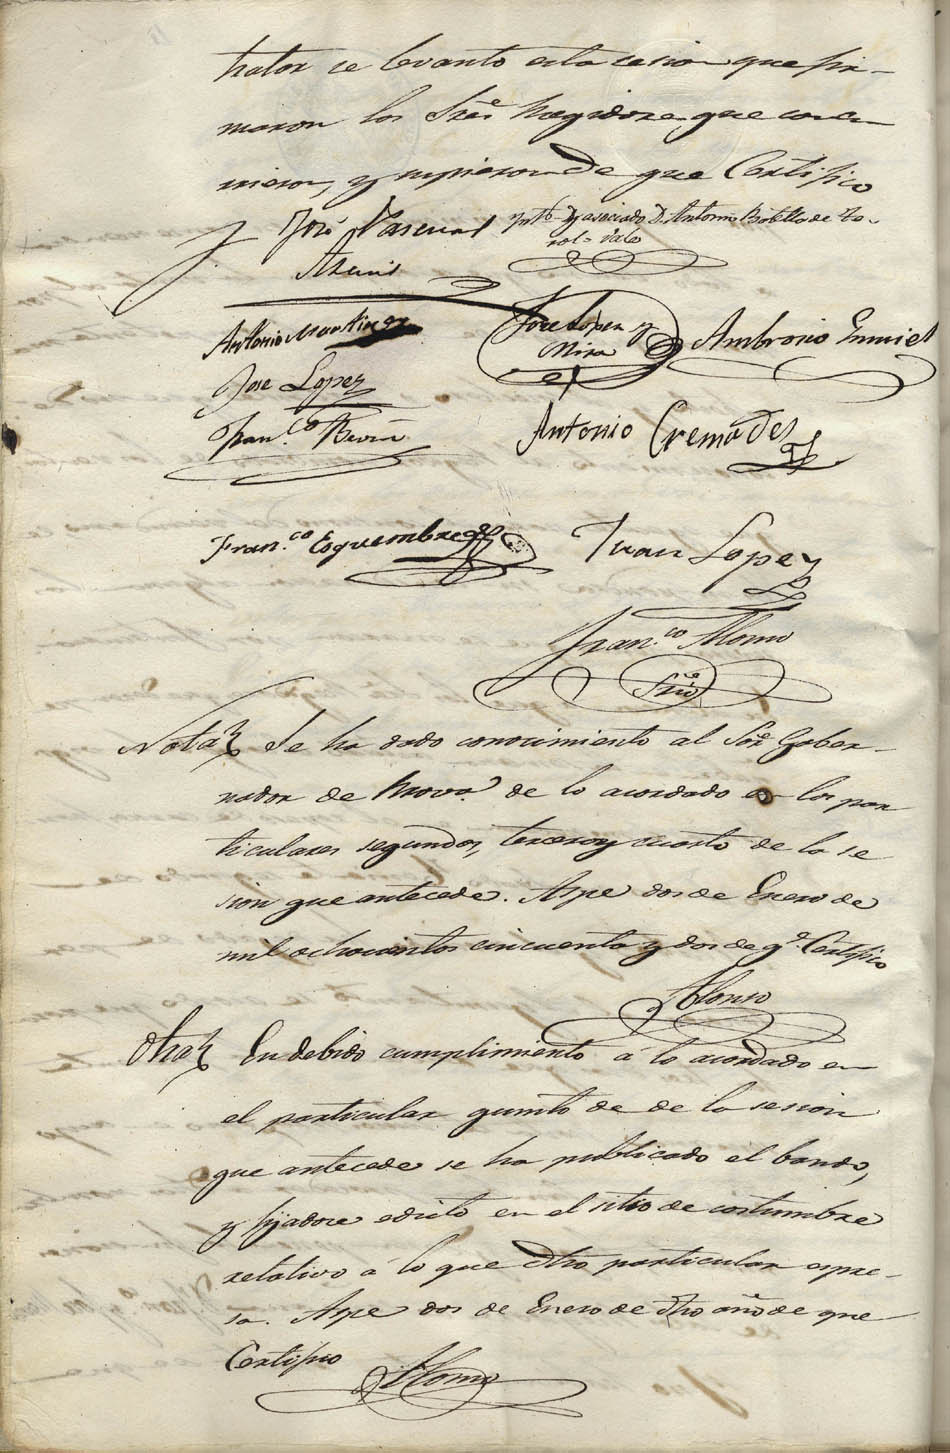 tratar se levanto esta sesion que fir-
maron los Sres Regidores que concu-
rieron, y supieron de que Certifico
José Pascual
y por sí y asociado D. Antonio Botella de Ca-
rol = Vale
Antonio Martinez
Jose Lopez y
Mira
Ambrosio
Jose Lopez
Fran.co
Antonio Cremades
Fran.co Esquembre
Juan Lopez
Fran.co Alonso
Srio
Nota Se ha dado conocimiento al Sor Gober-
nador de Prova. de lo acordado en los par
ticulares segundo, tercero y cuarto de la se
sion que antecede. Aspe dos de Enero de
mil ochocientos cincuenta y dos de qe Certifico
Alonso
Otra En debido cumplimiento á lo acordado en
el particular quinto de de la sesion
que antecede se ha publicado el bando,
y fijadose edicto en el sitio de costumbre
relativo á lo que dho particular espre-
sa. Aspe dos de Enero de dho año de que
Certifico
Alonso